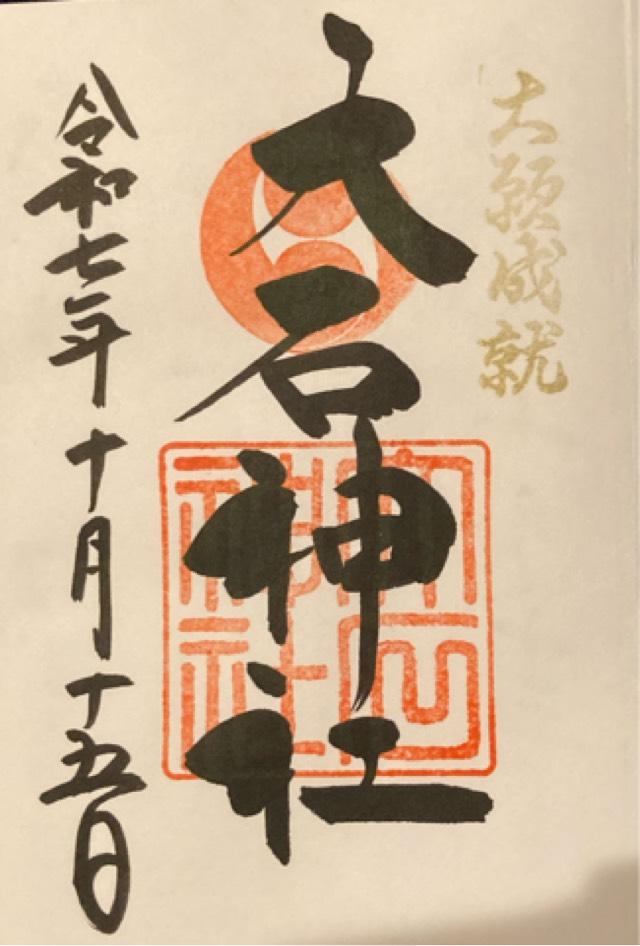 大願成就
大石神社
大石神社
令和七年十月十五日